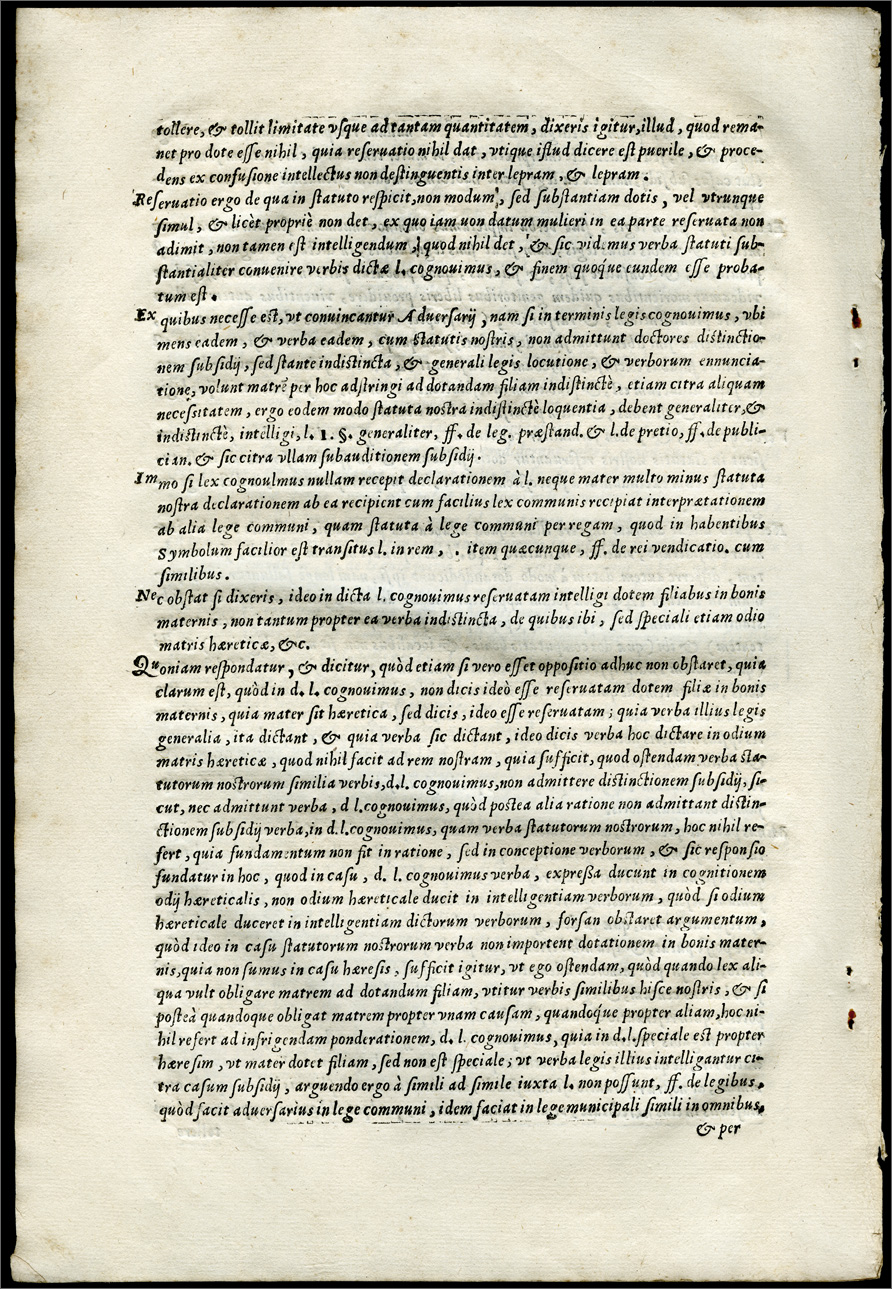 tollere, & tollit limitate vſque ad tantam quantitatem, dixeris igitur, illud, quod rema-
net pro dote eſſe nihil, quia reſeruatio nihil dat, vtique iſtud dicere eſt puerile, & proce-
dens ex confuſione intellectus non deſtinguentis inter lepram, & lepram.
Reſeruatio ergo de qua in ſtatuto reſpicit, non modum, ſed ſubſtantiam dotis, vel vtrunque
ſimul, & licèt propriè non det, ex quo iam uon datum mulieri in ea parte reſeruata non
adimit, non tamen eſt intelligendum, quod nihil det, & ſic videmus verba ſtatuti ſub-
ſtantialiter conuenire verbis dictæ l. cognouimus, & finem quoque eundem eſſe proba-
tum eſt.
Ex quibus neceſſe eſt, vt conuincantur Aduerſarij, nam ſi in terminis legis cognouimus, vbi
mens eadem, & verba eadem, cum ſtatutis noſtris, non admittunt doctores diſtinctio-
nem ſubſidij, ſed ſtante indiſtincta, & generali legis locutione, & verborum ennuncia-
tione, volunt matrẽ per hoc adſtringi ad dotandam filiam indiſtinctè, etiam citra aliquam
neceſſitatem, ergo eodem modo ſtatuta noſtra indiſtinctè loquentia, debent generaliter, &
indiſtinctè, intelligi, l. 1. §. generaliter, ff. de leg. præſtand. & l. de pretio, ff. de publi-
cian. & ſic citra vllam ſubauditionem ſubſidij.
Immo ſi lex cognoulmus nullam recepit declarationem à l. neque mater multo minus ſtatuta
noſtra declarationem ab ea recipient cum facilius lex communis recipiat interprætationem
ab alia lege communi, quam ſtatuta à lege communi per regam, quod in habentibus
Symbolum facilior eſt tranſitus l. in rem, . item quæcunque, ff. de rei vendicatio. cum
ſimilibus.
Nec obſtat ſi dixeris, ideo in dicta l. cognouimus reſeruatam intelligi dotem filiabus in bonis
maternis, non tantum propter ea verba indiſtincta, de quibus ibi, ſed ſpeciali etiam odio
matris hæreticæ, &c.
Quoniam reſpondatur, & dicitur, quòd etiam ſi vero eſſet oppoſitio adhuc non obſtaret, quia
clarum eſt, quòd in d. l. cognouimus, non dicis ideò eſſe reſeruatam dotem filiæ in bonis
maternis, quia mater ſit hæretica, ſed dicis, ideo eſſe reſeruatam; quia verba illius legis
generalia, ita dictant, & quia verba ſic dictant, ideo dicis verba hoc dictare in odium
matris hæreticæ, quod nihil facit ad rem noſtram, quia ſufficit, quod oſtendam verba ſta-
tutorum noſtrorum ſimilia verbis, d. l. cognouimus, non admittere diſtinctionem ſubſidij, ſi-
cut, nec admittunt verba, d l. cognouimus, quòd poſtea alia ratione non admittant diſtin-
ctionem ſubſidij verba, in d. l. cognouimus, quam verba ſtatutorum noſtrorum, hoc nihil re-
fert, quia fundamentum non fit in ratione, ſed in conceptione verborum, & ſic reſponſio
fundatur in hoc, quod in caſu, d. l. cognouimus verba, expreßa ducunt in cognitionem
odij hæreticalis, non odium hæreticale ducit in intelligentiam verborum, quòd ſi odium
hæreticale duceret in intelligentiam dictorum verborum, forſan obſtaret argumentum,
quòd ideo in caſu ſtatutorum noſtrorum verba non importent dotationem in bonis mater-
nis, quia non ſumus in caſu hæreſis, ſufficit igitur, vt ego oſtendam, quòd quando lex ali-
qua vult obligare matrem ad dotandum filiam, vtitur verbis ſimilibus hiſce noſtris, & ſi
poſteà quandoque obligat matrem propter vnam cauſam, quandoque propter aliam, hoc ni-
hil refert ad infrigendam ponderationem, d. l. cognouimus, quia in d. l. ſpeciale eſt propter
hæreſim, vt mater dotet filiam, ſed non eſt ſpeciale; vt verba legis illius intelligantur ci-
tra caſum ſubſidij, arguendo ergo à ſimili ad ſimile iuxta l. non poſſunt, ff. de legibus,
quòd facit aduerſarius in lege communi, idem faciat in lege municipali ſimili in omnibus,
& per